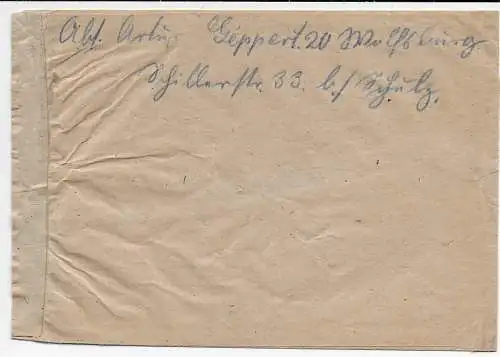 Abs. Artur Geppert. 20 Wolfsburg
Schillerstr. 33. b./ Schulz.